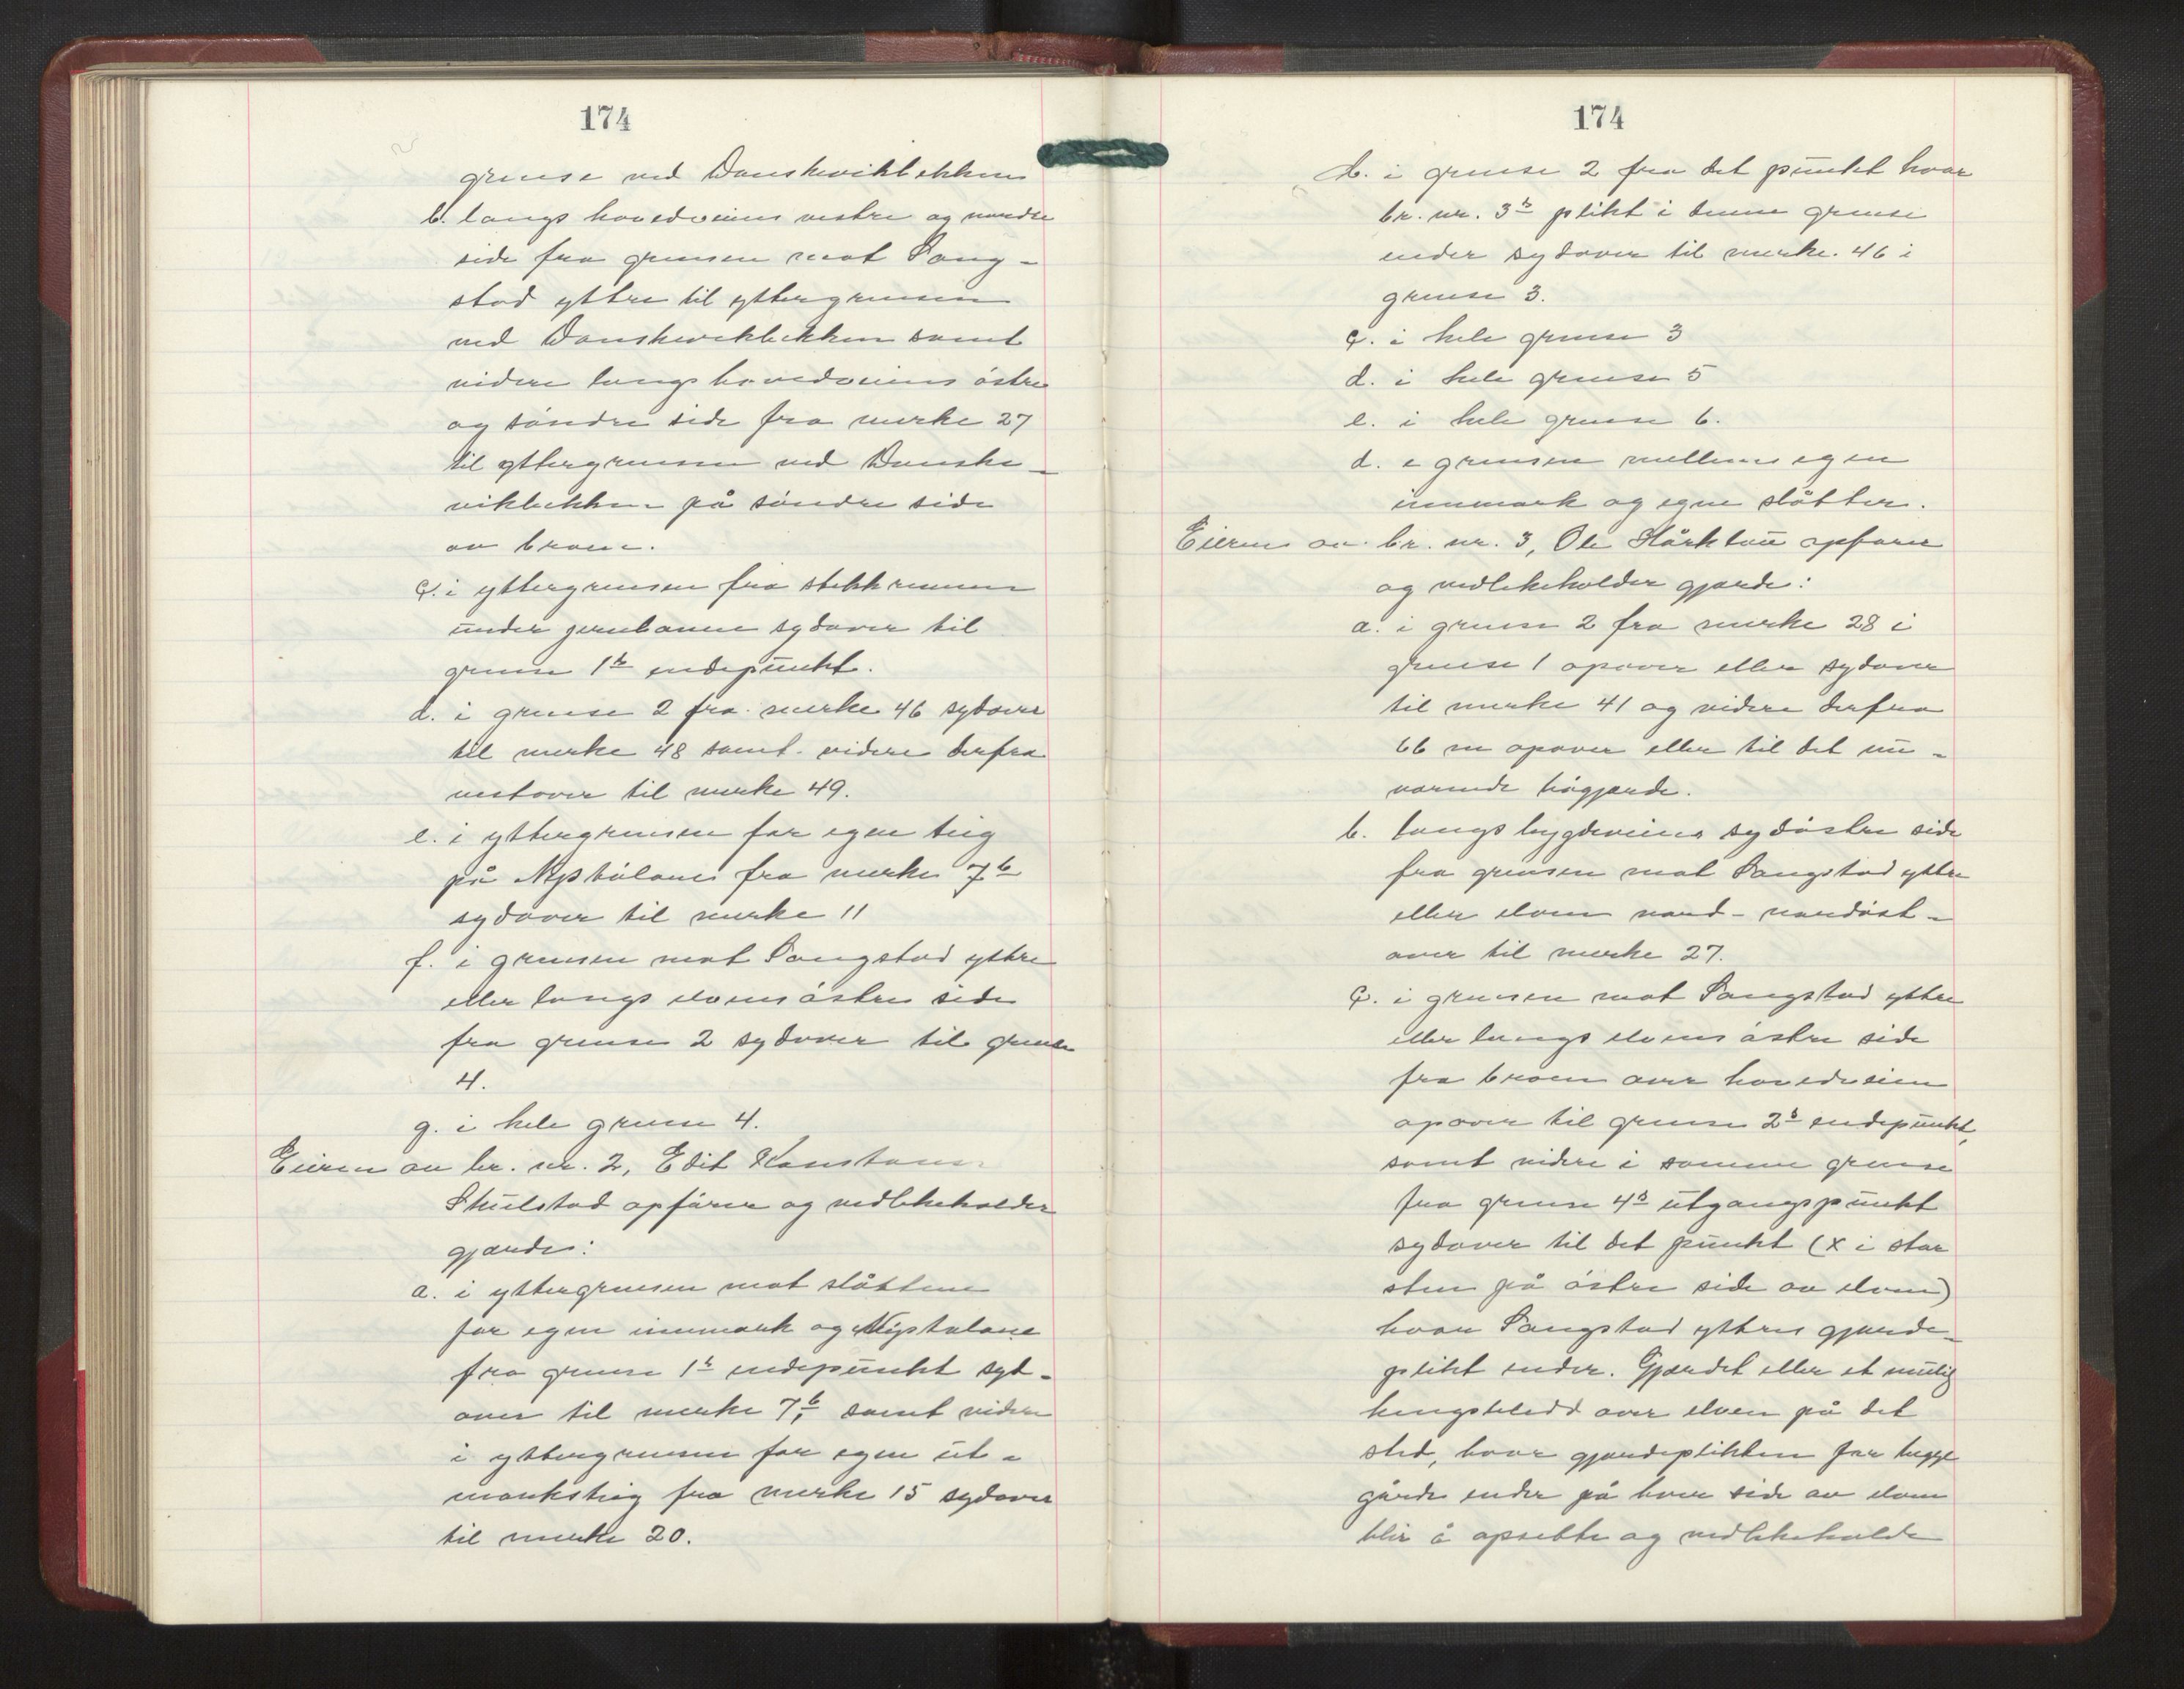 174
grense ved Danskevikbekken
b. langs hovedveiens vestre og nordre
side fra grensen mot Sang-
stad yttre til yttergrensen
ved Danskevikbekken samt
videre langs hovedveiens östre
og söndre side fra merke 27
til yttergrensen ved Danske-
vikbekken på söndre side
av broen.
c. i yttergrensen fra stikkrennen
under jernbanen sydover til
grense 1s endepunkt.
d. i grense 2 fra merke 46 sydover
til merke 48 samt videre derfra
vestover til merke 49.
e. i yttergrensen for egen teig
på fra merke 7b
sydover til merke 11
f. i grensen mot Sangstad yttre
eller langs elvens östre side
fra grense 2 sydover til grense
4.
g. i hele grense 4.
Eieren av br. nr. 2, Edit Konstanse
Skulstad opförer og vedlikeholder
gjærde:
a. i yttergrensen mot slåttene
for egen innmark og
fra grense 1s endepunkt syd-
over til merke 7b, samt videre
i yttergrensen for egen ut-
marksteig fra merke 15 sydover
til merke 20.
174
b. i grense 2 fra det punkt hvor
br. nr. 3s plikt i denne grense
ender sydover til merke 46 i
grense 3.
c. i hele grense 3
d. i hele grense 5
e. i hele grense 6.
d. i grensen mellem egen
innmark og egne slåtter.
Eieren av br. nr. 3, Ole opförer
og vedlikeholder gjærde:
a. i grense 2 fra merke 28 i
grense 1 opover eller sydover
til merke 41 og videre derfra
66 m opover eller til det nu-
værende
b. langs bygdeveiens sydöstre side
fra grensen mot Sangstad yttre
eller elven nord-nordöst-
over til merke 27.
c. i grensen mot Sangstad yttre
eller langs elvens östre side
fra broen over hovedveien
opover til grense 2s endepunkt,
samt videre i samme grense
fra grense 4s utgangspunkt
sydover til det punkt (x i stor
sten på östre side av elven)
hvor Sangstad yttres gjærde-
plikt ender. Gjærdet eller et mulig
hengsteledd over elven på det
sted, hvor gjærdeplikten for begge
gårde ender på hver side av elven
blir å opsette og vedlikeholde